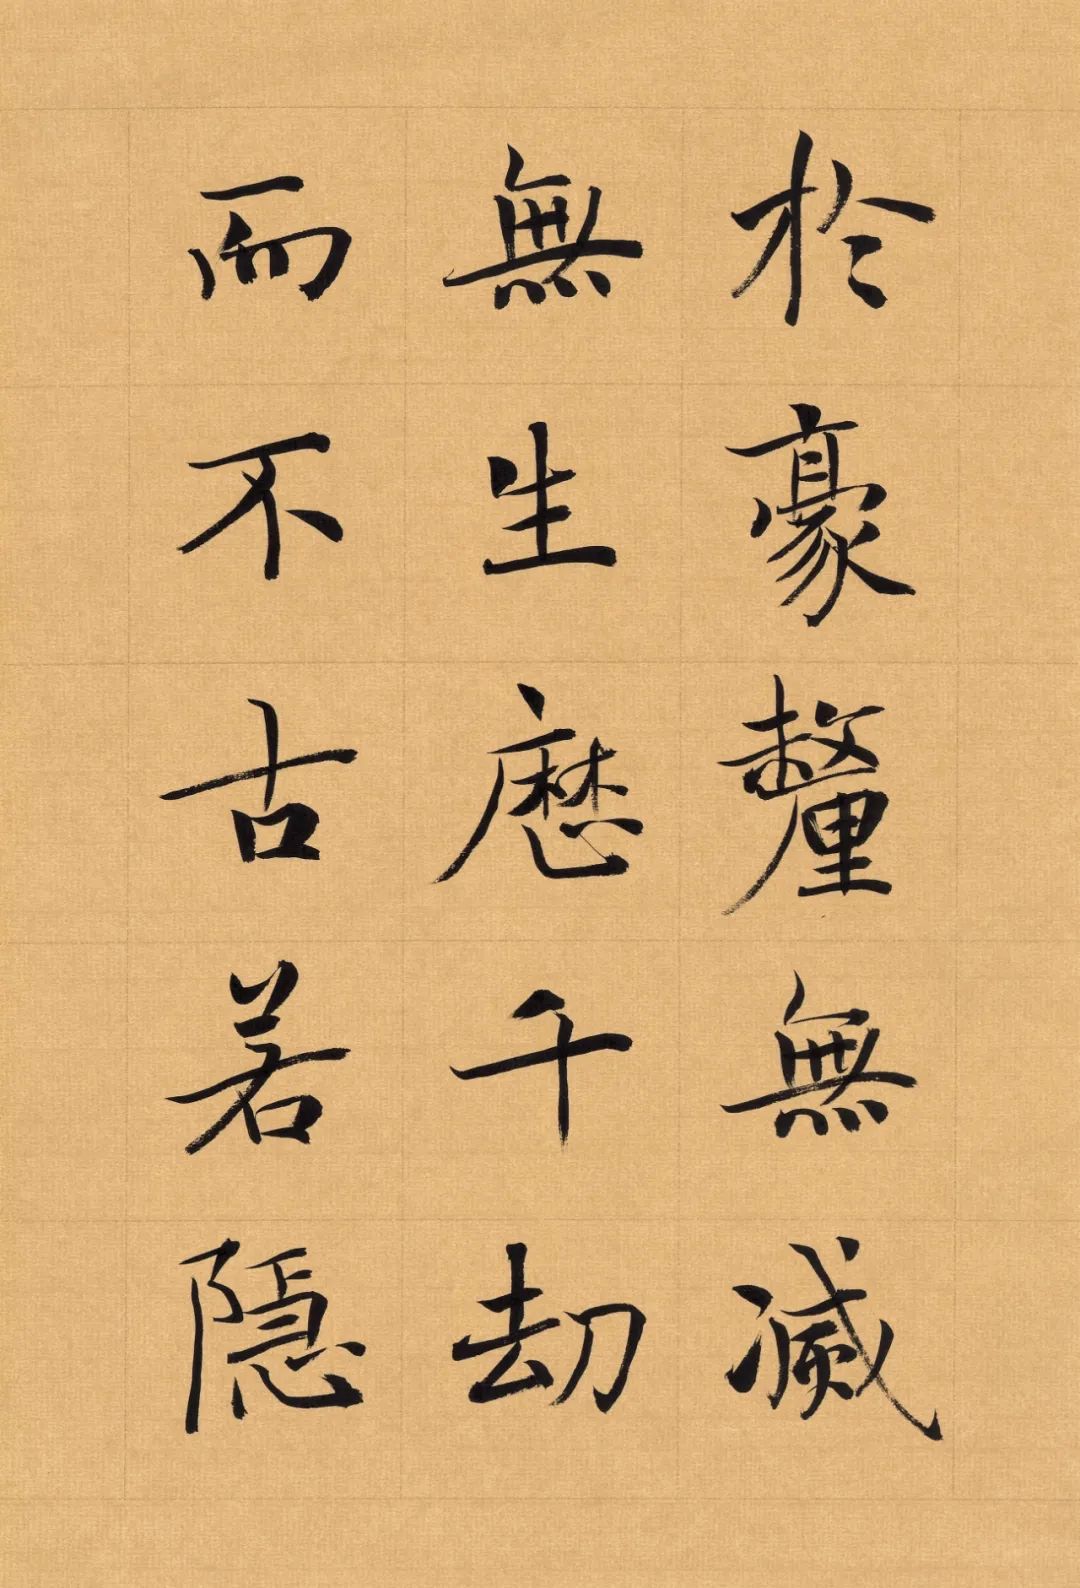 於豪釐無滅
無生歷千劫
而不古若隱